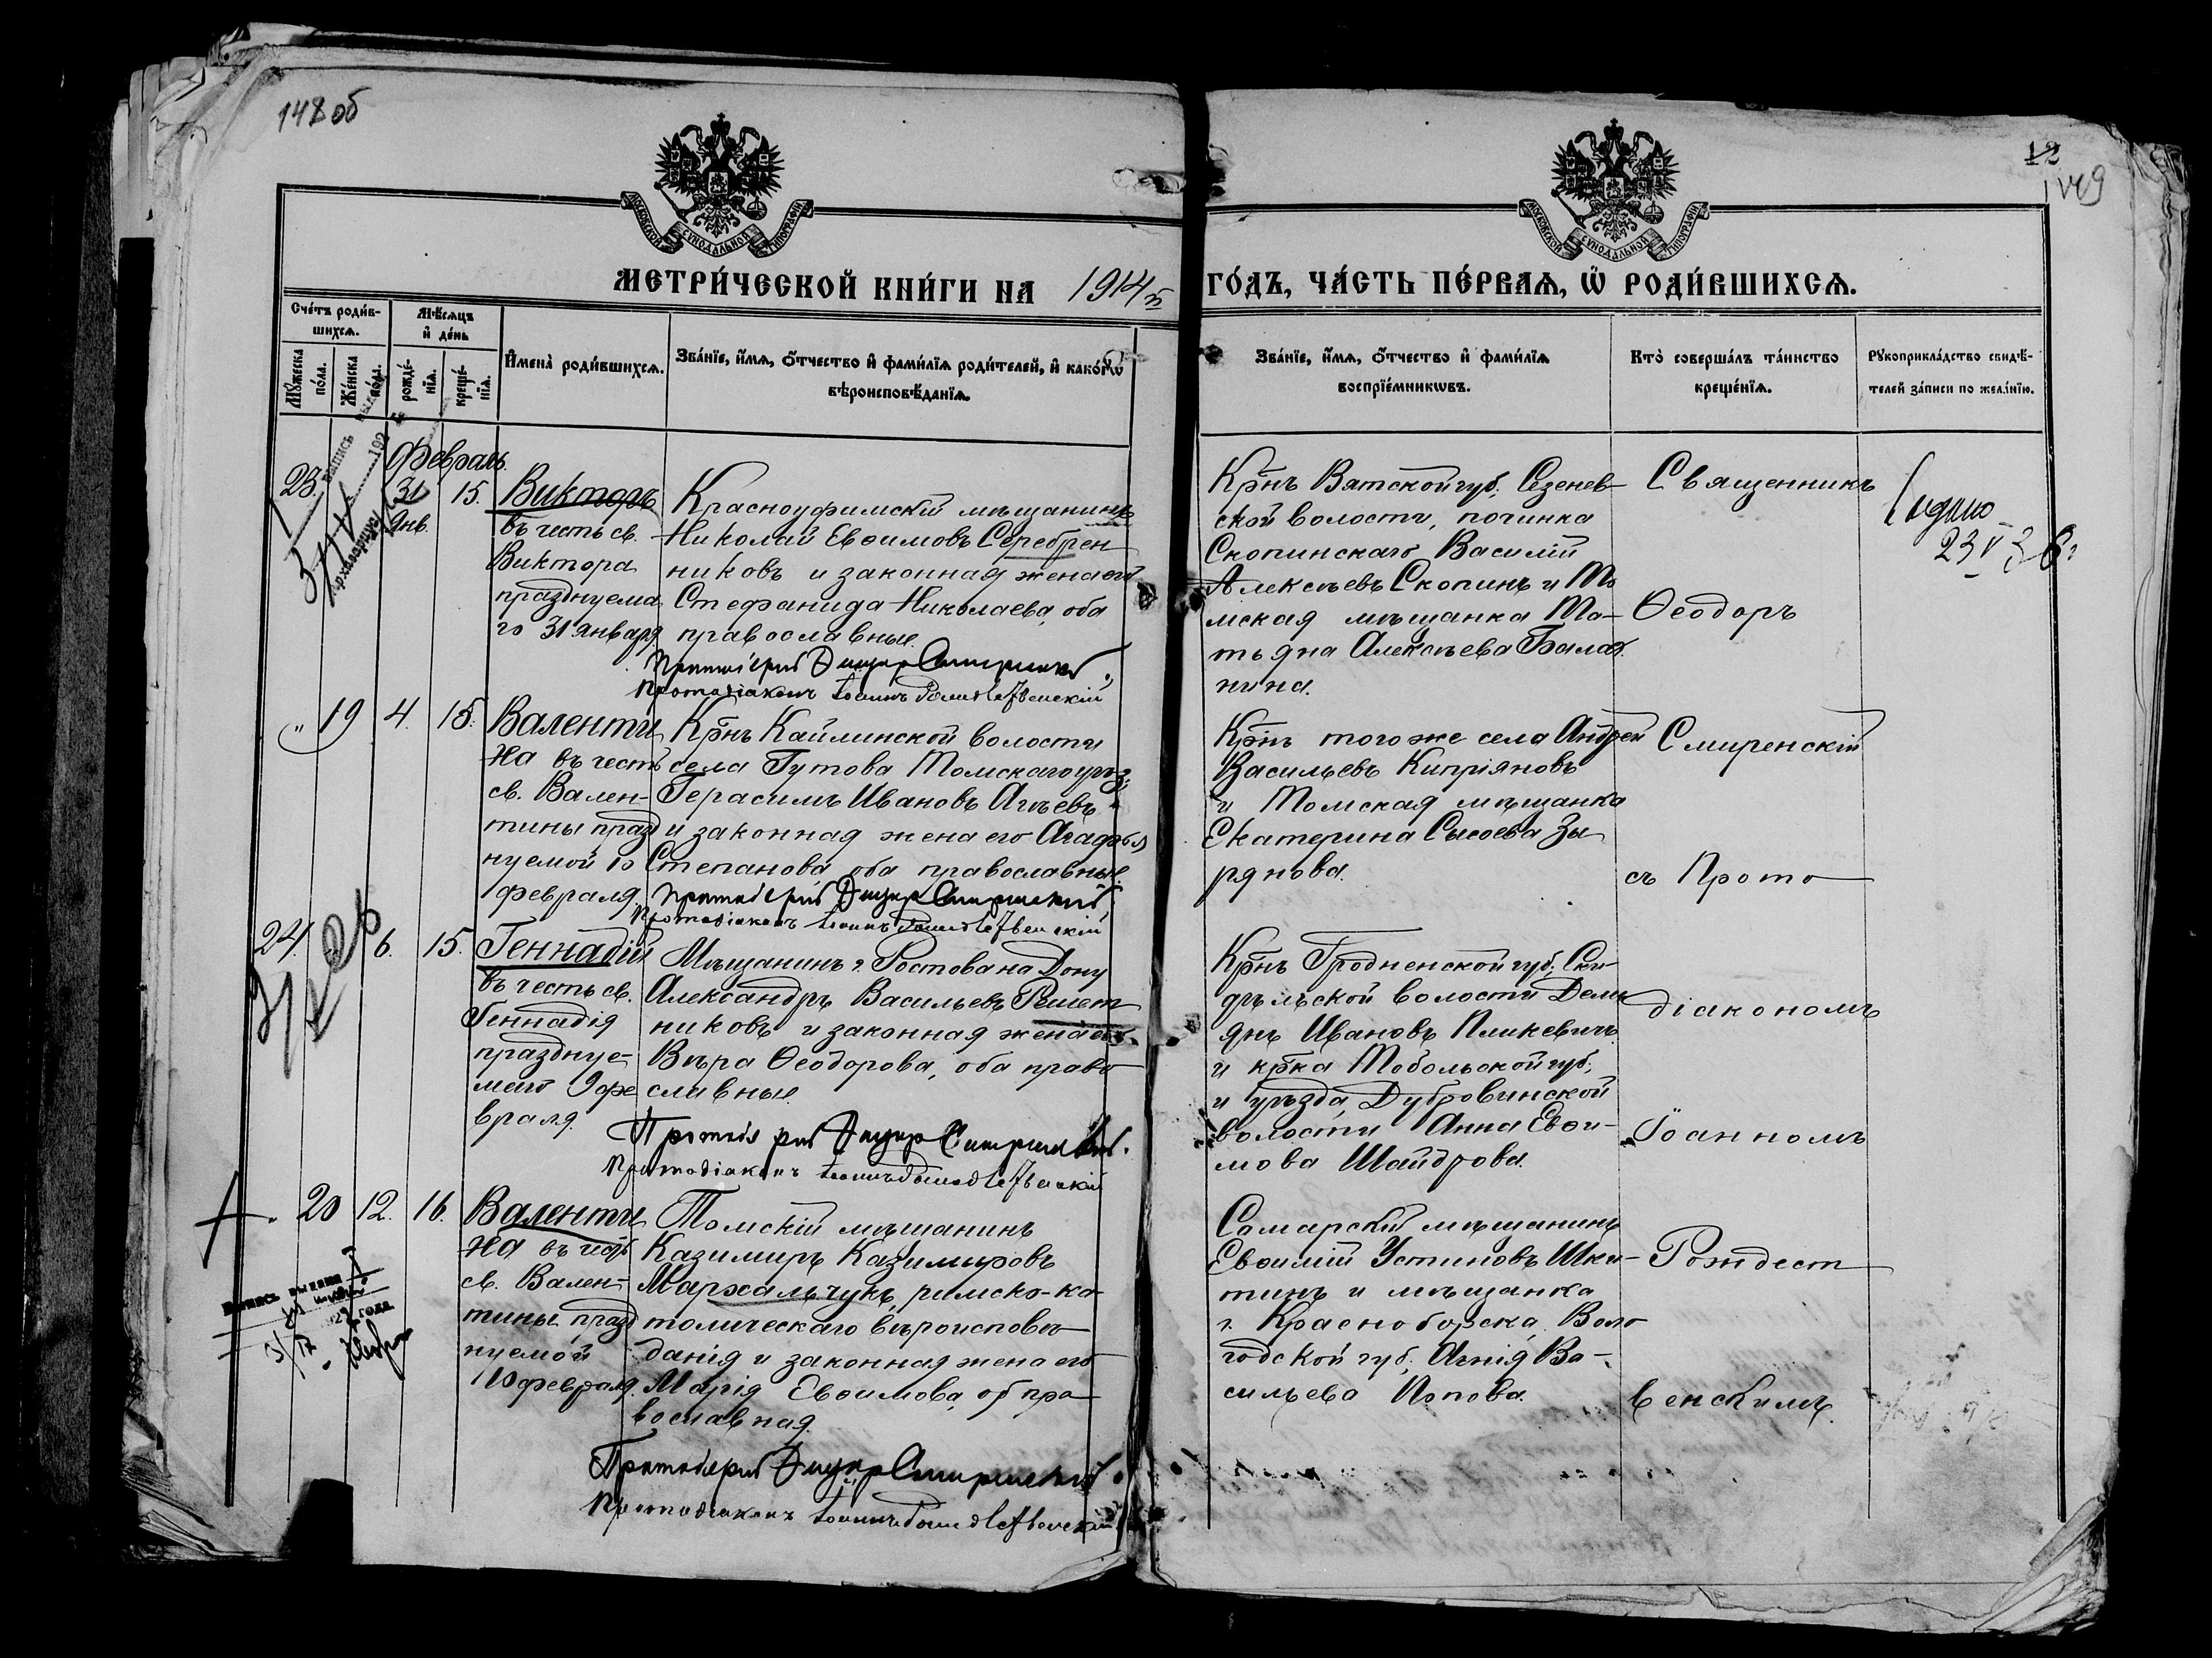 148 об
12
149
МОСКОВСКОЙ СѴНОДАЛЬНОЙ ТИПОГРАФІИ
МОСКОВСКОЙ СѴНОДАЛЬНОЙ ТИПОГРАФІИ
МЕТРИ́ЧЕСКОЙ КНИ́ГИ НА 1914 й ГО́ДЪ, ЧА́СТЬ ПЕ́РВАѦ, Ѽ РОДИ́ВШИХСѦ.
Сче́тъ роди́в-
шихсѧ.
Мꙋжеска по́ла.
Же́нска по́ла.
Мѣ́сѧцъ и҆ де́нь
рожде́-
нїѧ.
креще́-
нїѧ.
И҆мена̀ роди́вшихсѧ.
Зва́нїе, и҆́мѧ, ѻ҆́тчество и҆ фами́лїѧ роди́телей, и҆ како́гѡ
вѣроисповѣ́данїѧ.
Зва́нїе, и҆́мѧ, ѻ҆́тчество и҆ фами́лїѧ
воспрїе́мникѡвъ.
Кто̀ соверша́лъ та́инство
креще́нїѧ.
Рꙋкоприкла́дство свидѣ́-
телей за́писи по жела́нїю.
Февраль.
23. 31 Янв. 15.
Викторъ
въ честь св.
Виктора
празднуема
го 31 января
Красноуфимскій мѣщанинъ
Николай Евѳимовъ Серебрен
никовъ и законная жена его
Стефанида Николаева, оба
православные.
Протоіерей Смиренскій
Протодіаконъ Іоаннъ Рождественскій
Крнъ Вятской губ. Сезенев-
ской волости, починка
Скопинскаго Василій
Алексѣевъ Скопинъ и То
мская мѣщанка Та-
тьяна Алексѣева Балах
нина.
Священникъ
Ѳеодоръ
23 V 36 г
" 19 4. 15.
Валенти
на въ честь
св. Вален-
тины празд
нуемой 10
февраля.
Крнъ Кайлинской волости
села Гутова Томскаго уѣз.
Герасимъ Ивановъ Агѣевъ
и законная жена его Агафья
Степанова оба православные
Протоіерей Смиренскій
Протодіаконъ Іоаннъ Рождественскій
Крнъ того же села Андрей
Васильевъ Кипріяновъ
и Томская мѣщанка
Екатерина Сысоева Зы
рянова.
Смиренскій
съ Прото
24. 6. 15.
Геннадій
въ честь св.
Геннадія
празднуе-
маго 9 фе
враля.
Мѣщанинъ г. Ростова на Дону
Александръ Васильевъ Решет
никовъ и законная жена его
Вѣра Ѳеодорова, оба право
славные.
Протоіерей Смиренскій.
Протодіаконъ Іоаннъ Рождественскій
Крнъ Гродненской губ. Ски-
дѣльской волости Демь
янъ Ивановъ Пликевичъ
и крка Тобольской губ.
и уѣзда, Дубровинской
волости Анна Евѳи-
мова Шайдрова.
діакономъ
Іоанномъ
20 12. 16.
Валенти
на въ честь
св. Вален-
тины празд
нуемой
10 февраля.
Томскій мѣщанинъ
Казимиръ Казимировъ
Мархальчукъ, римско-ка
толическаго вѣроисповѣ
данія и законная жена его
Марія Евѳимова, пра
вославная.
Протоіерей Смиренскій.
Протодіаконъ Іоаннъ Рождественскій
Самарскій мѣщанинъ
Евѳимій Устиновъ Шки-
тинъ и мѣщанка
г. Красноборска, Воло
годской губ. Агнія Ва-
сильева Попова.
Рождест
венскимъ.